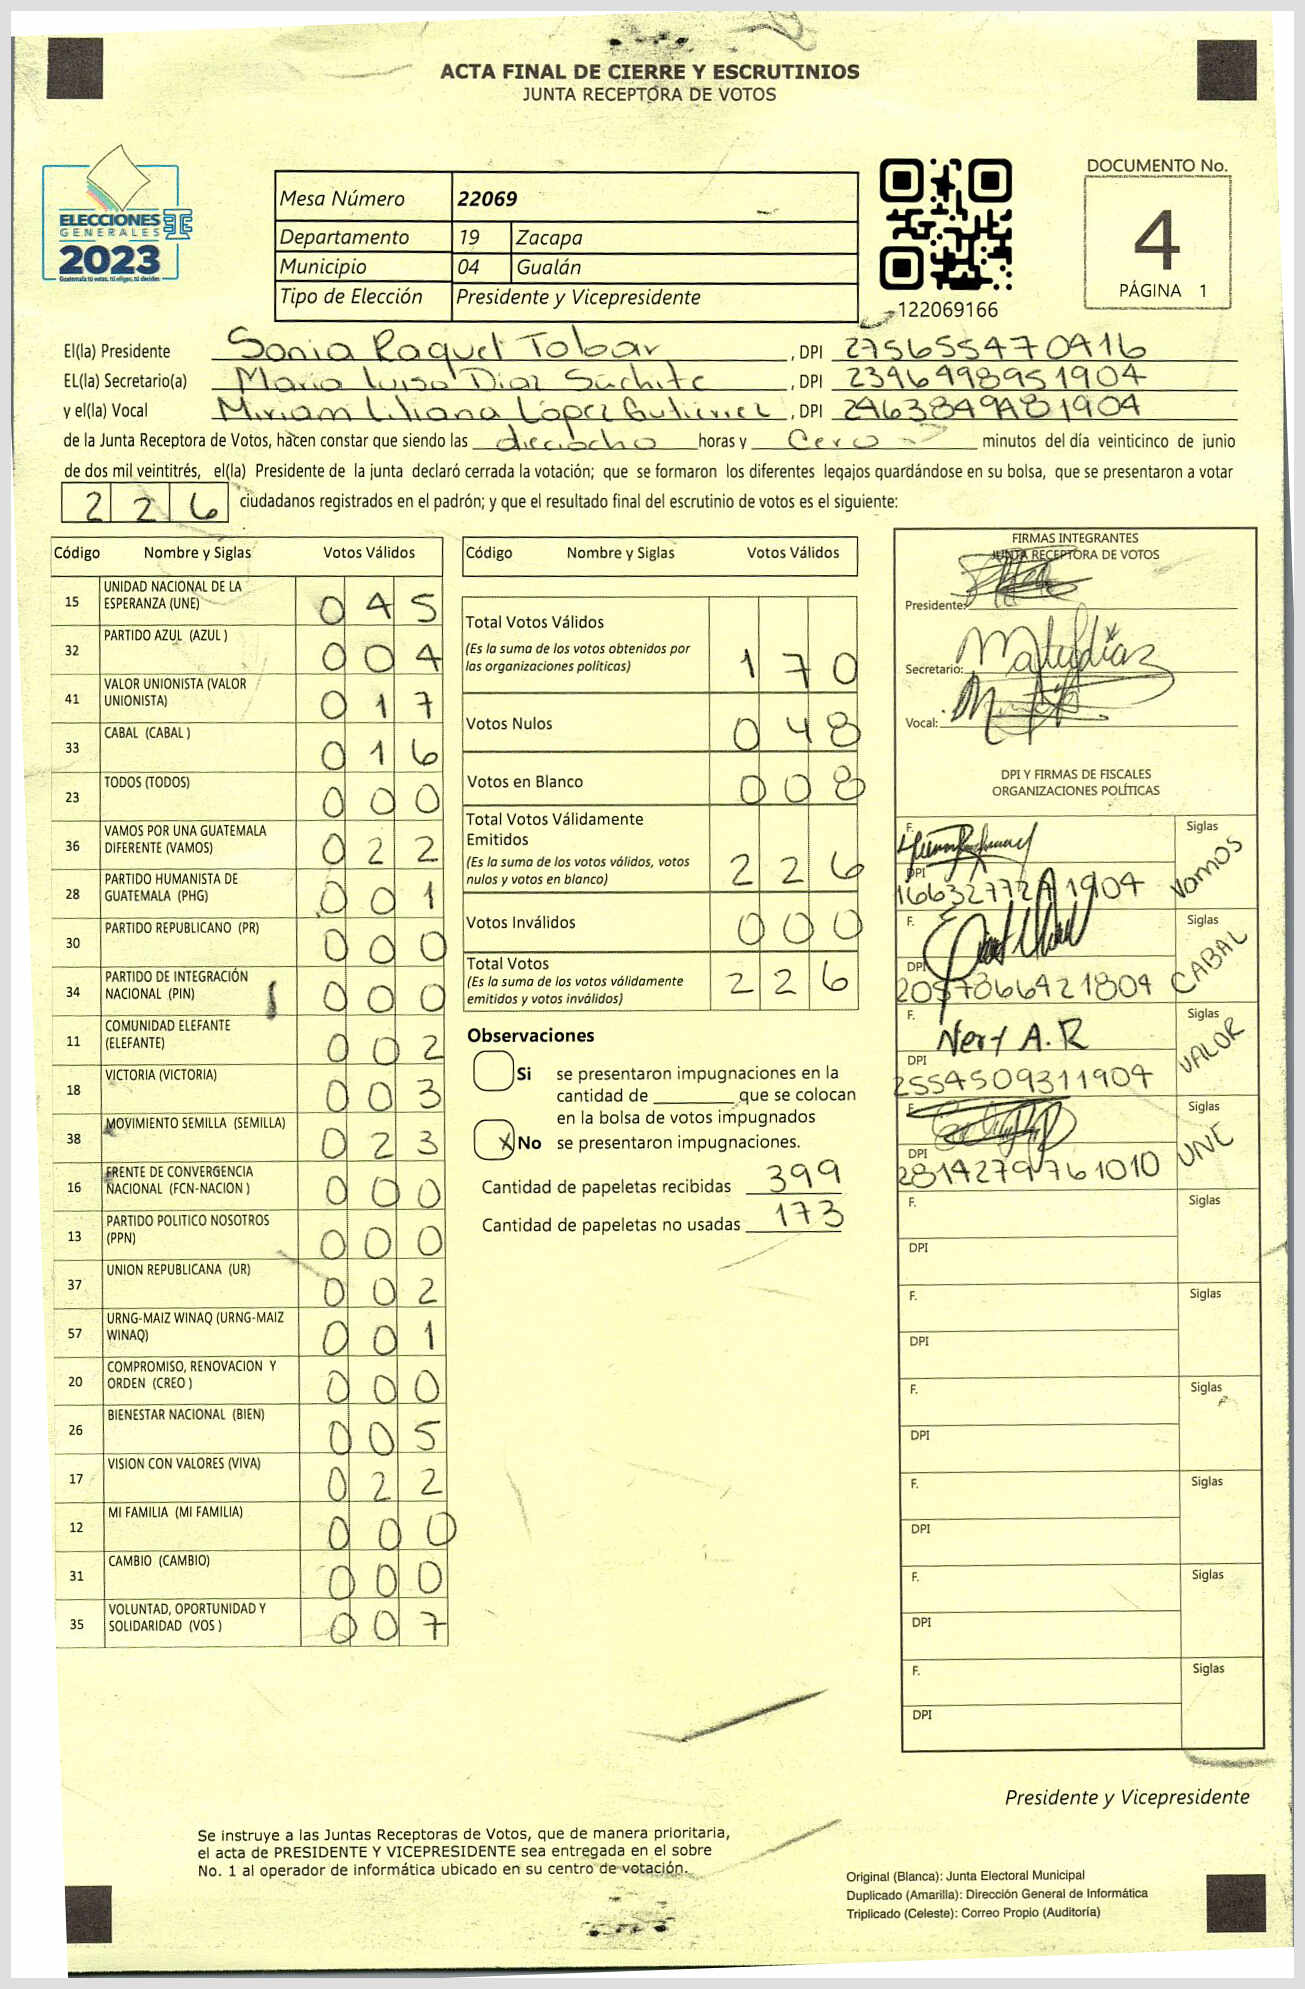 ACTA FINAL DE CIERRE Y ESCRUTINIOS
JUNTA RECEPTORA DE VOTOS
ELECCIONES
GENERALES
2023
Guatemala tú votas, tú eliges, tú decides
Mesa Número 22069
Departamento 19 Zacapa
Municipio 04 Gualán
Tipo de Elección Presidente y Vicepresidente
122069166
DOCUMENTO No.
4
PÁGINA 1
El(la) Presidente Sonia Raquel Tobar, DPI 2756555470416
EL(la) Secretario(a) Maria Luisa Diaz Súchite, DPI 2394649895 1904
y el(la) Vocal Miriam Liliana López Gutiérrez, DPI 2463849481904
de la Junta Receptora de Votos, hacen constar que siendo las dieciocho horas y Cero minutos del día veinticinco de junio
de dos mil veintitrés, el(la) Presidente de la junta declaró cerrada la votación; que se formaron los diferentes legajos guardándose en su bolsa, que se presentaron a votar
226 ciudadanos registrados en el padrón; y que el resultado final del escrutinio de votos es el siguiente:
Código Nombre y Siglas Votos Válidos
15 UNIDAD NACIONAL DE LA ESPERANZA (UNE) 045
32 PARTIDO AZUL (AZUL ) 004
41 VALOR UNIONISTA (VALOR UNIONISTA) 017
33 CABAL (CABAL ) 016
23 TODOS (TODOS) 000
36 VAMOS POR UNA GUATEMALA DIFERENTE (VAMOS) 022
28 PARTIDO HUMANISTA DE GUATEMALA (PHG) 001
30 PARTIDO REPUBLICANO (PR) 000
34 PARTIDO DE INTEGRACIÓN NACIONAL (PIN) 000
11 COMUNIDAD ELEFANTE (ELEFANTE) 002
18 VICTORIA (VICTORIA) 003
38 MOVIMIENTO SEMILLA (SEMILLA) 023
16 FRENTE DE CONVERGENCIA NACIONAL (FCN-NACION ) 000
13 PARTIDO POLITICO NOSOTROS (PPN) 000
37 UNION REPUBLICANA (UR) 002
57 URNG-MAIZ WINAQ (URNG-MAIZ WINAQ) 001
20 COMPROMISO, RENOVACION Y ORDEN (CREO ) 000
26 BIENESTAR NACIONAL (BIEN) 005
17 VISION CON VALORES (VIVA) 022
12 MI FAMILIA (MI FAMILIA) 000
31 CAMBIO (CAMBIO) 000
35 VOLUNTAD, OPORTUNIDAD Y SOLIDARIDAD (VOS ) 007
Código Nombre y Siglas Votos Válidos
Total Votos Válidos
(Es la suma de los votos obtenidos por
las organizaciones políticas) 170
Votos Nulos 048
Votos en Blanco 008
Total Votos Válidamente
Emitidos
(Es la suma de los votos válidos, votos
nulos y votos en blanco) 226
Votos Inválidos 000
Total Votos
(Es la suma de los votos válidamente
emitidos y votos inválidos) 226
Observaciones
Si se presentaron impugnaciones en la
cantidad de ________ que se colocan
en la bolsa de votos impugnados
X No se presentaron impugnaciones.
Cantidad de papeletas recibidas 399
Cantidad de papeletas no usadas 173
FIRMAS INTEGRANTES
JUNTA RECEPTORA DE VOTOS
Presidente:
Secretario:
Vocal:
DPI Y FIRMAS DE FISCALES
ORGANIZACIONES POLÍTICAS
F. Siglas
DPI Vamos
F. Siglas
DPI 2057866421804 CABAL
F. Nery A. R Siglas
DPI 2554509311904 VALOR
F. Siglas
DPI 2814279761010 UNE
F. Siglas
DPI
F. Siglas
DPI
F. Siglas
DPI
F. Siglas
DPI
F. Siglas
DPI
F. Siglas
DPI
Presidente y Vicepresidente
Se instruye a las Juntas Receptoras de Votos, que de manera prioritaria,
el acta de PRESIDENTE Y VICEPRESIDENTE sea entregada en el sobre
No. 1 al operador de informática ubicado en su centro de votación.
Original (Blanca): Junta Electoral Municipal
Duplicado (Amarilla): Dirección General de Informática
Triplicado (Celeste): Correo Propio (Auditoría)